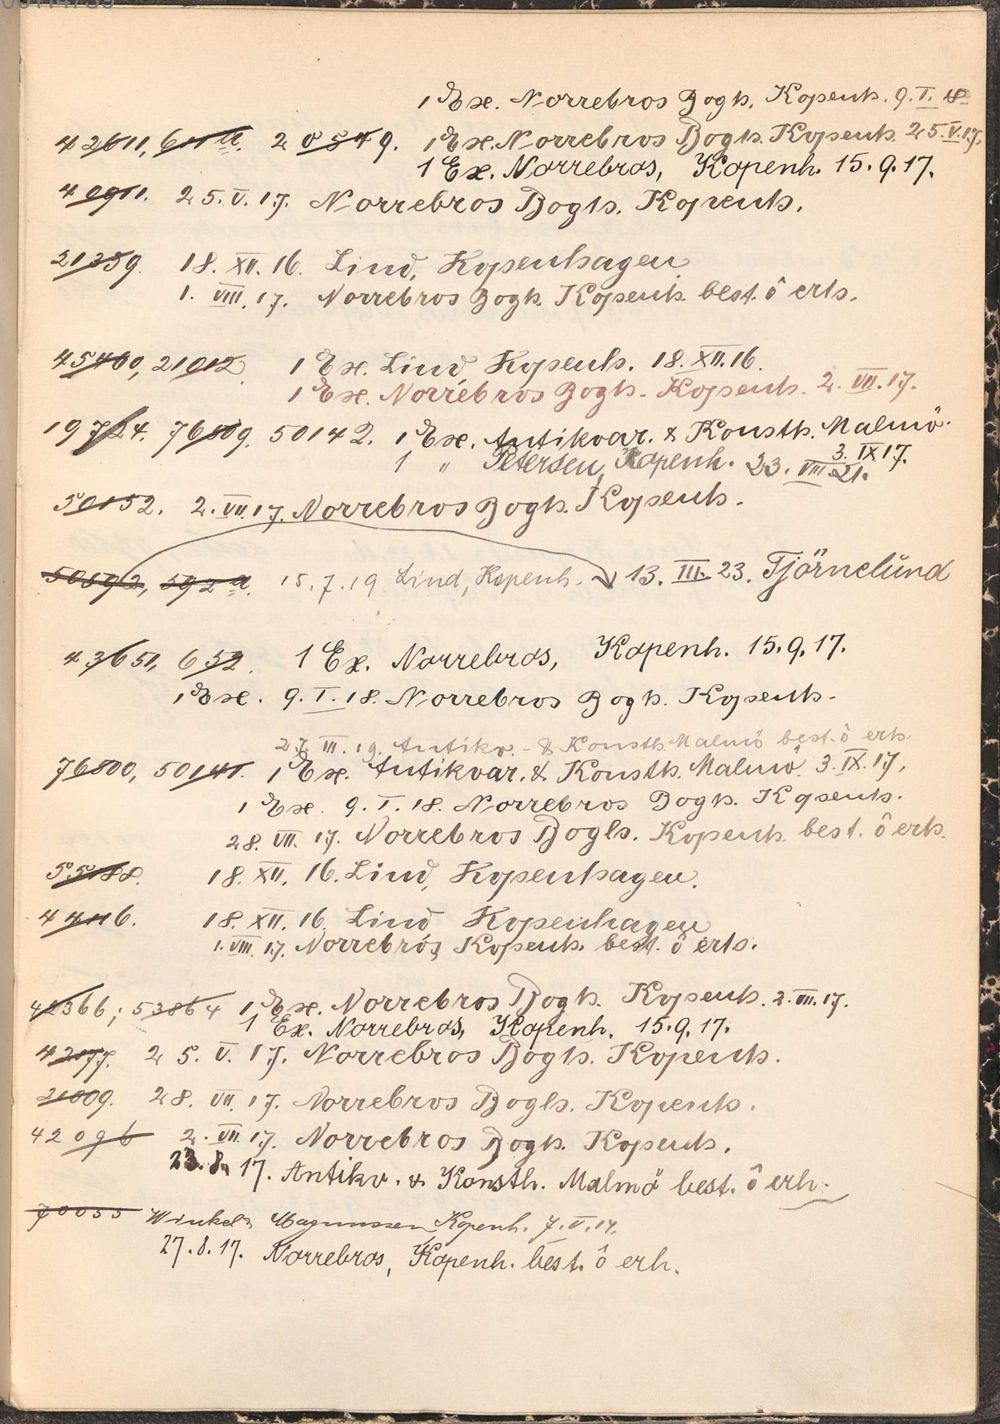 1 Ex. Norrebros Bogh. Kopenh. 9. I. 18
42611, 611a. 20549. 1 Ex. Norrebros Bogh. Kopenh. 25. V. 17.
1 Ex. Norrebros, Kopenh. 15. 9. 17.
40911. 25. V. 17. Norrebros Bogh. Kopenh.
21359. 18. XII. 16. Lind, Kopenhagen.
1. VIII. 17. Norrebros Bogh. Kopenh. best. ô erh.
45400, 21012. 1 Ex. Lind, Kopenh. 18. XII. 16.
1 Ex. Norrebros Bogh. Kopenh. 2. VII. 17.
19724. 76809. 50142. 1 Ex. Antikvar. & Konsth. Malmö.
3. IX 17.
1 " Petersen, Kopenh. 23. VIII 21.
50152. 2. VII. 17. Norrebros Bogh. Kopenh.
50592, 592a. 15. 7. 19 Lind, Kopenh. 13. III. 23. Tjörnelund
43651, 652. 1 Ex. Norrebros, Kopenh. 15. 9. 17.
1 Ex. 9. I. 18. Norrebros Bogh. Kopenh.
27. III. 19. Antikv. & Konsth. Malmö best. ô erh.
76800, 50141. 1 Ex. Antikvar. & Konsth. Malmö. 3. IX. 17.
1 Ex. 9. I. 18. Norrebros Bogh. Kopenh.
28. VII. 17. Norrebros Bogh. Kopenh. best. ô erh.
55188. 18. XII. 16. Lind, Kopenhagen.
44116. 18. XII. 16. Lind Kopenhagen
1. VIII. 17. Norrebros Kopenh. best. ô erh.
42366; 53864 1 Ex. Norrebros Bogh. Kopenh. 2. VII. 17.
1 Ex. Norrebros, Kopenh. 15. 9. 17.
42177. 25. V. 17. Norrebros Bogh. Kopenh.
21009. 28. VII. 17. Norrebros Bogh. Kopenh.
42096 2. VII. 17. Norrebros Bogh. Kopenh.
23. 8. 17. Antikv. & Konsth. Malmö best. ô erh.
70055 Winkel & Magnussen, Kopenh. 7. V. 17.
27. 8. 17. Norrebros, Kopenh. best. ô erh.